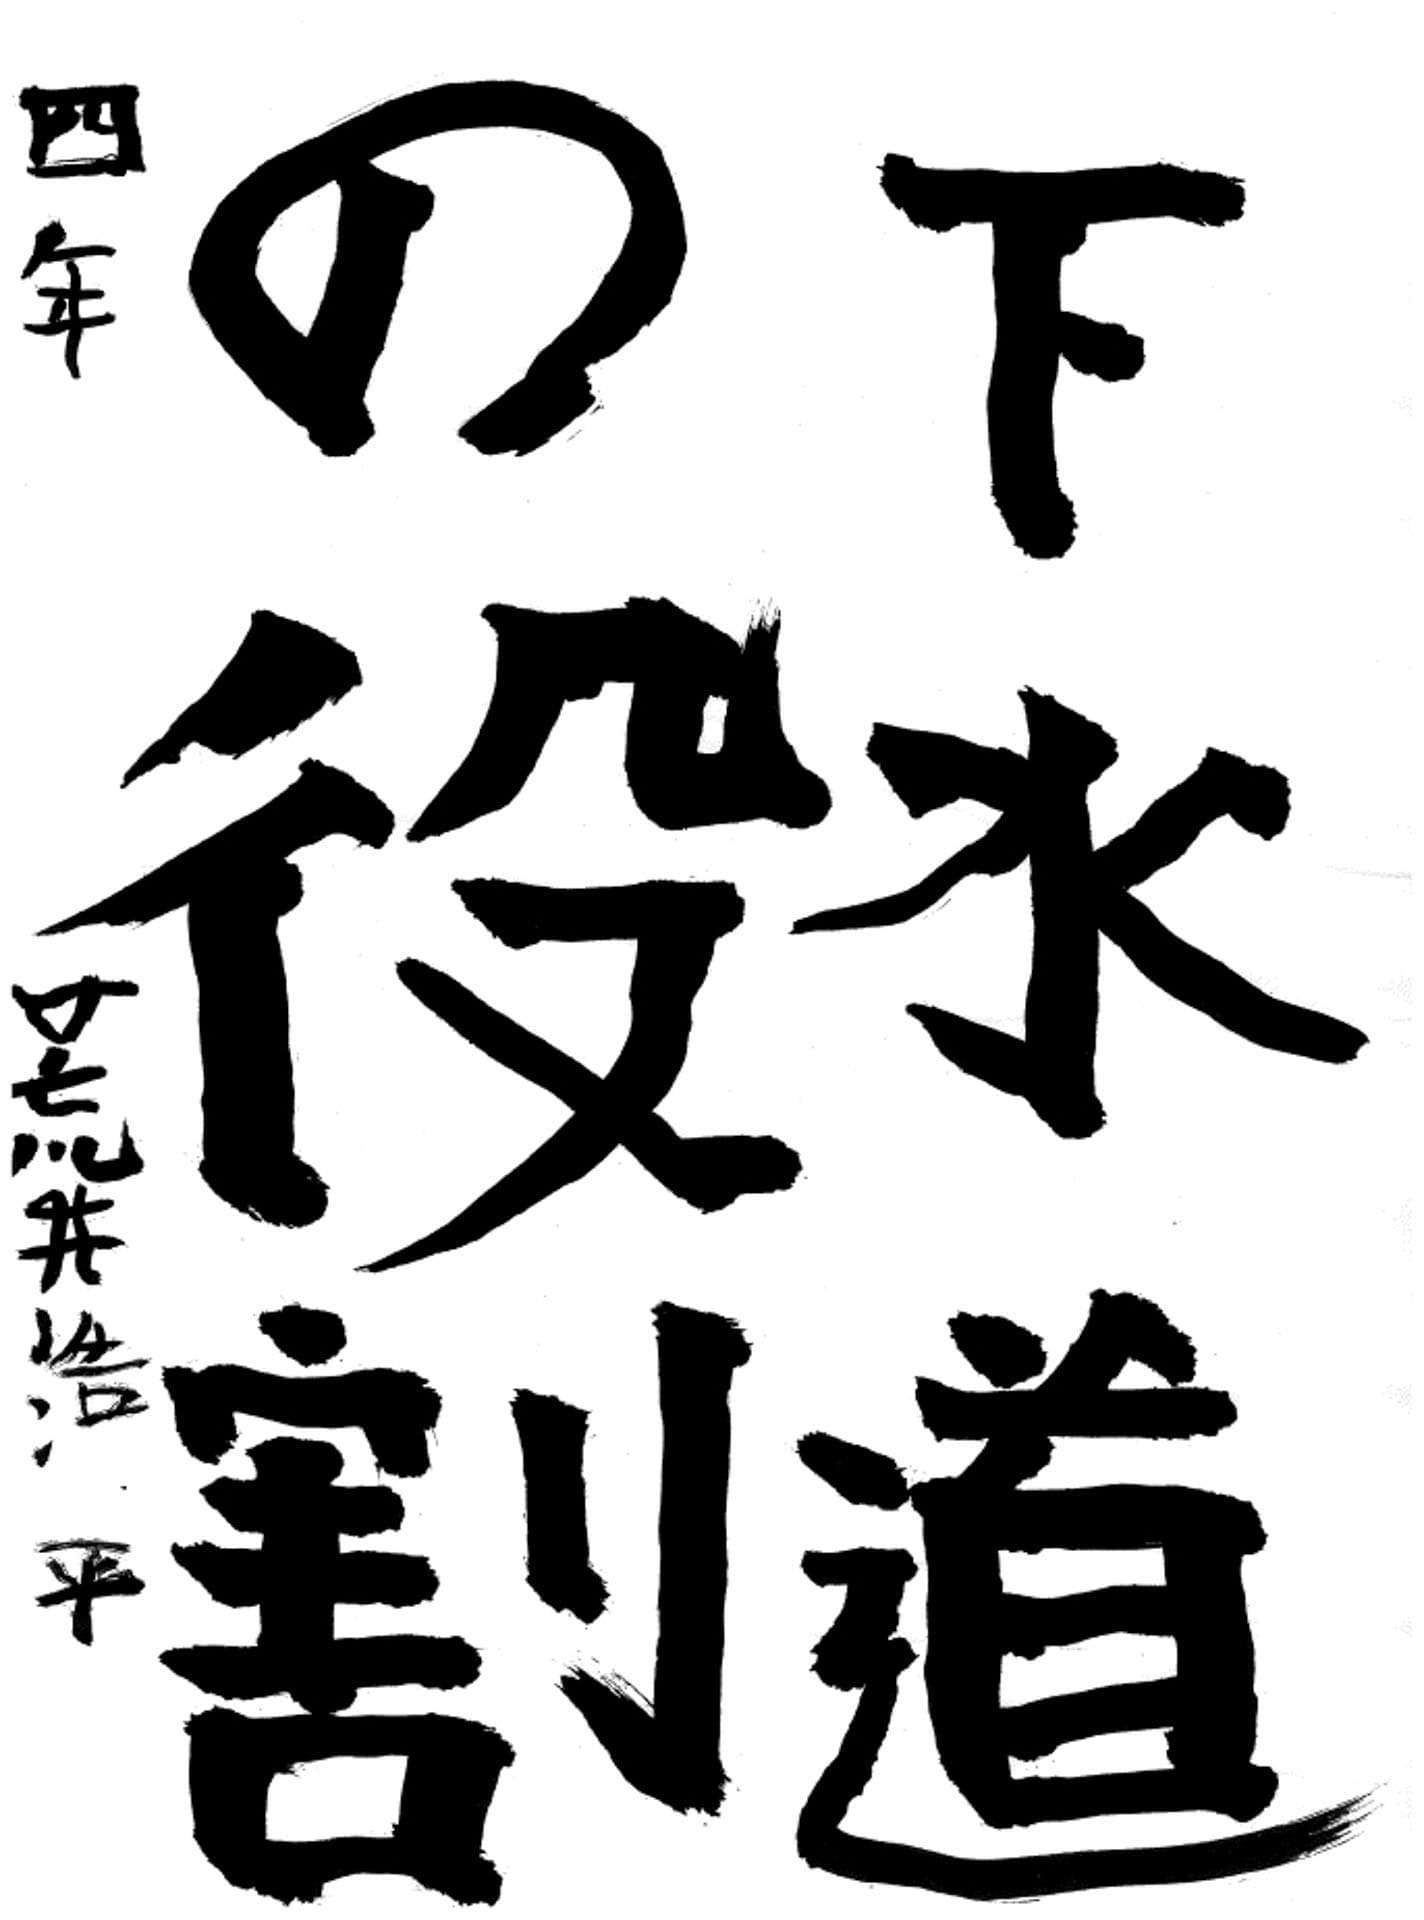 下水道
の役割
四年 荒井浩平